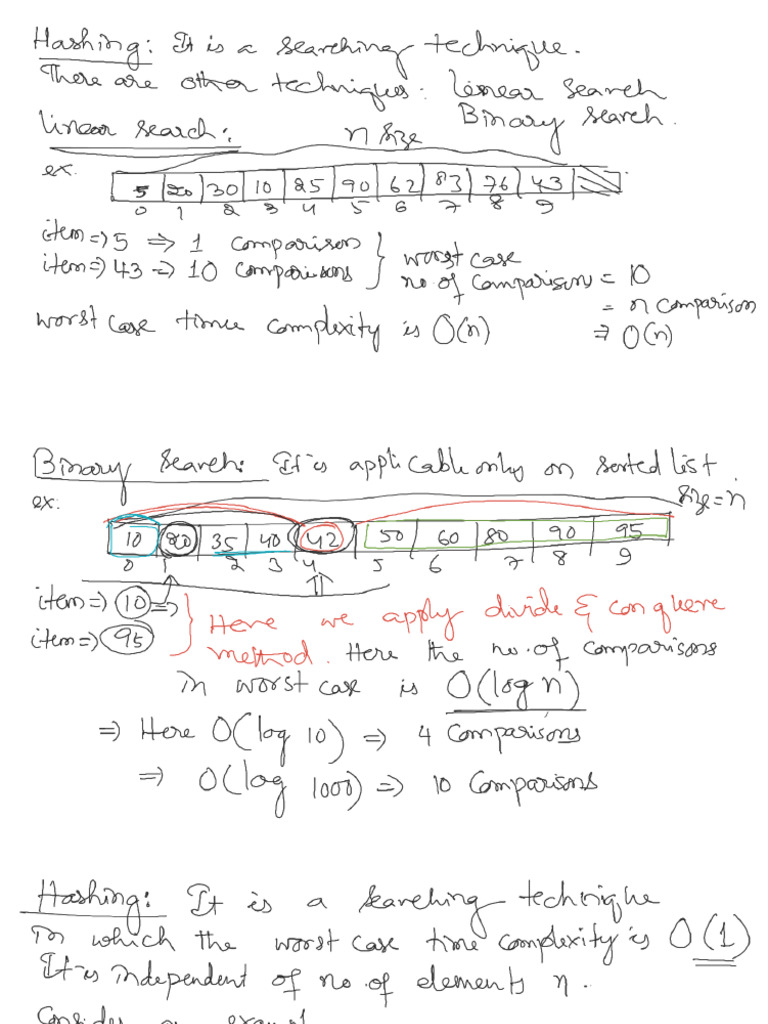 Hashing: It is a searching technique.
There are other techniques: linear search
Binary search.
linear search:
n size
ex.
5 20 30 10 25 90 62 83 76 43
0 1 2 3 4 5 6 7 8 9
item => 5 => 1 comparison
item => 43 => 10 comparisons
worst case
no of comparison = 10
= n comparison
=> O(n)
worst case time complexity is O(n)
Binary search: It is applicable only on sorted list
size = n
ex.
10 20 35 40 42 50 60 80 90 95
0 1 2 3 4 5 6 7 8 9
item => 10 =>
item => 95
Here we apply divide & conquere
method. Here the no. of comparisons
in worst case is O(log n)
=> Here O(log 10) => 4 comparisons
=> O(log 1000) => 10 comparisons
Hashing: It is a searching technique
in which the worst case time complexity is O(1)
It is independent of no. of elements n.